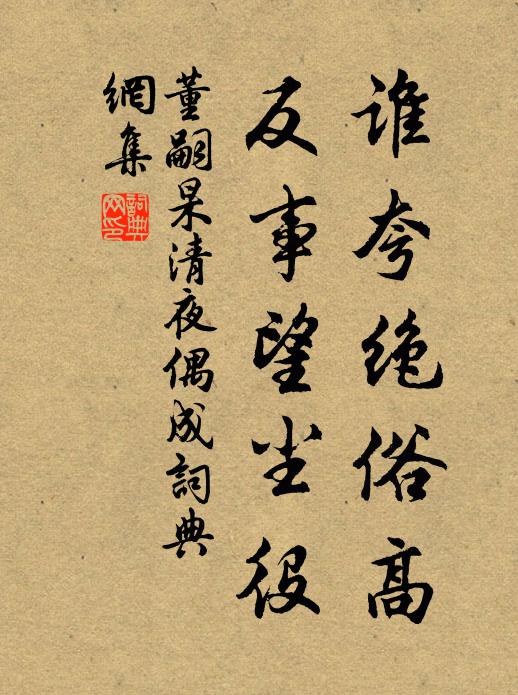 谁夸绝俗高
反事望尘役
董嗣杲清夜偶成詞典
網集
詞典
网印